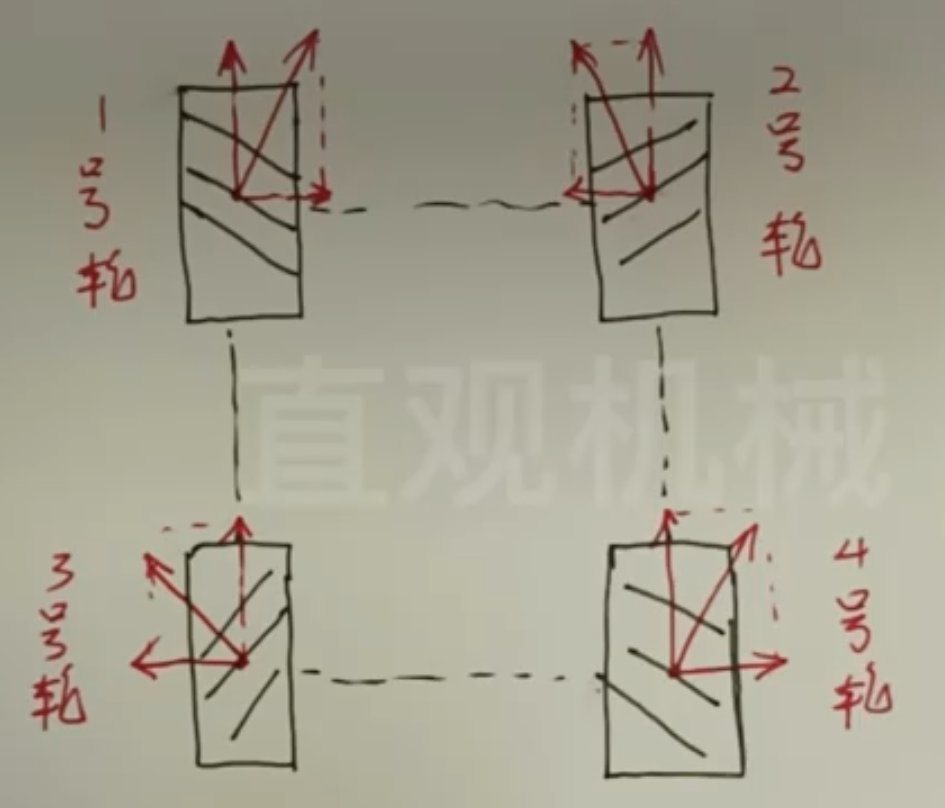 1号轮
2号轮
直观机械
3号轮
4号轮